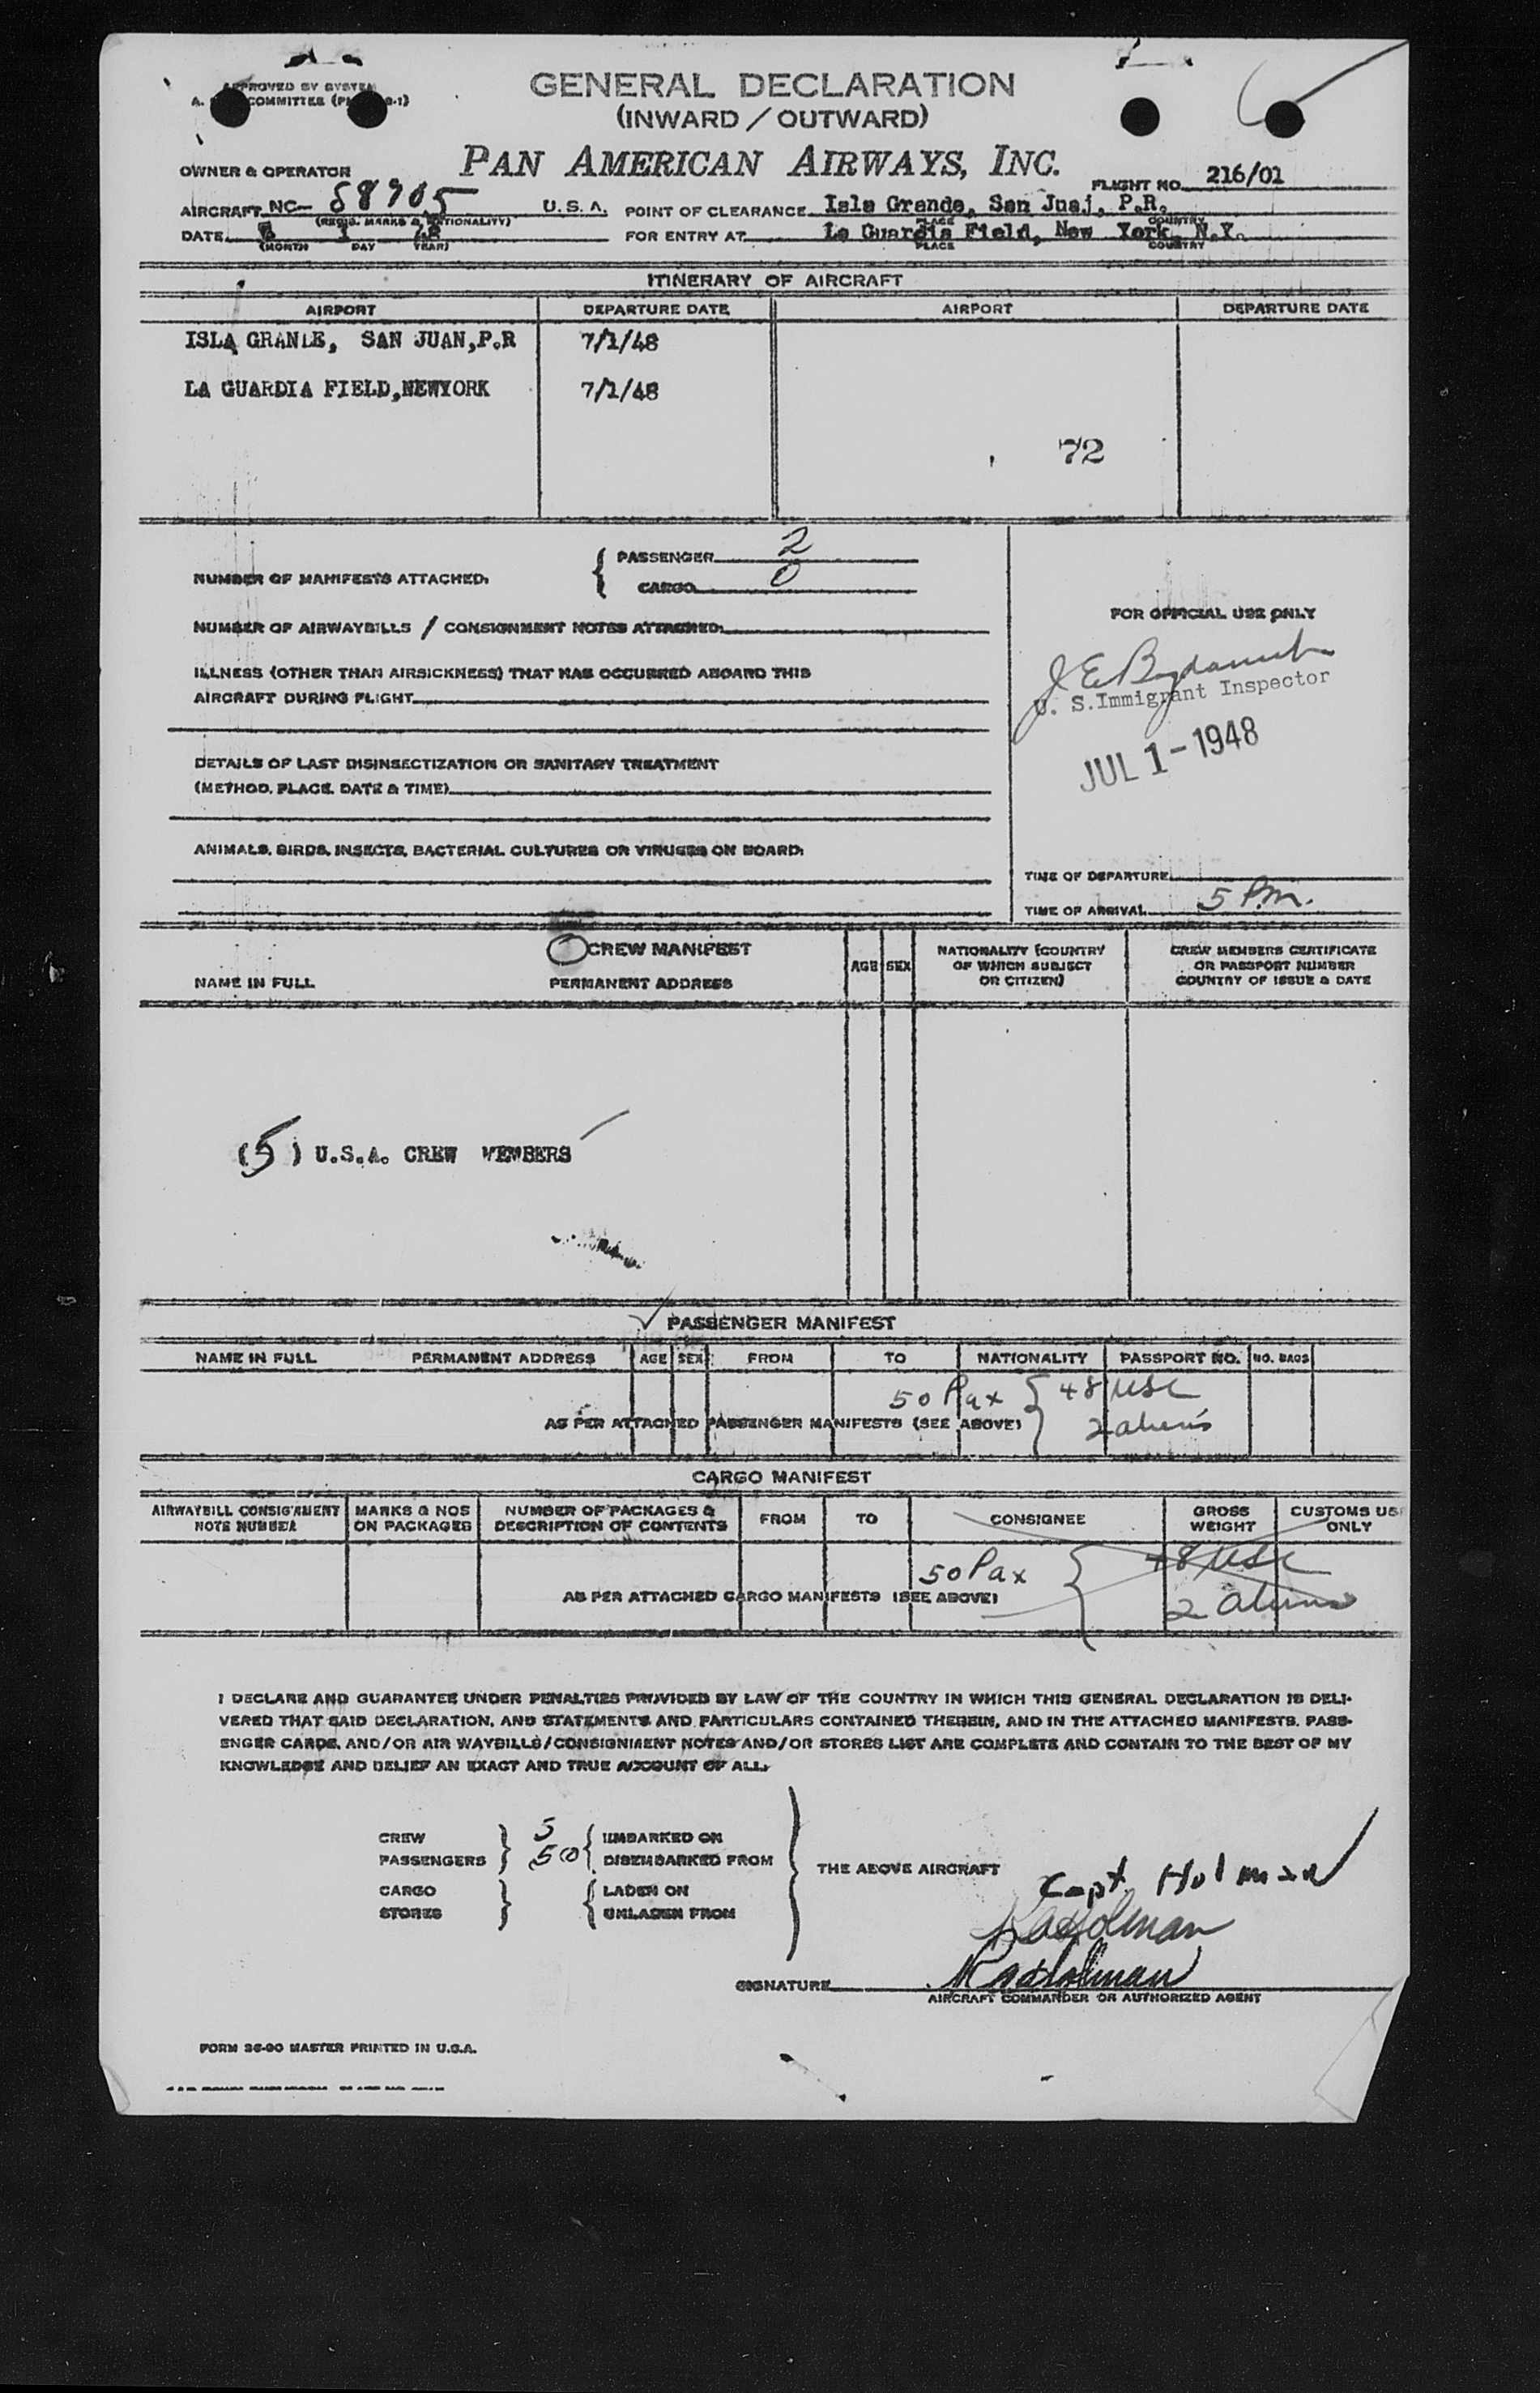 APPROVED BY SYSTEM
A. COMMITTEE
GENERAL DECLARATION
(INWARD / OUTWARD)
PAN AMERICAN AIRWAYS, INC.
OWNER & OPERATOR
FLIGHT NO. 216/01
AIRCRAFT NC- 88905 U.S.A. POINT OF CLEARANCE Isla Grande, San Juaj, P.R.
(REGIS. MARKS & NATIONALITY) PLACE COUNTRY
DATE 1 48 FOR ENTRY AT La Guardia Field, New York, N.Y.
(MONTH DAY YEAR) PLACE COUNTRY
ITINERARY OF AIRCRAFT
AIRPORT DEPARTURE DATE AIRPORT DEPARTURE DATE
ISLA GRANDE, SAN JUAN,P.R 7/1/48
LA GUARDIA FIELD,NEWYORK 7/1/48
72
NUMBER OF MANIFESTS ATTACHED: { PASSENGER 2
CARGO 0
NUMBER OF AIRWAYBILLS / CONSIGNMENT NOTES ATTACHED:
FOR OFFICIAL USE ONLY
ILLNESS (OTHER THAN AIRSICKNESS) THAT HAS OCCURRED ABOARD THIS
AIRCRAFT DURING FLIGHT
U. S. Immigrant Inspector
JUL 1 - 1948
DETAILS OF LAST DISINSECTIZATION OR SANITARY TREATMENT
(METHOD, PLACE, DATE & TIME)
ANIMALS, BIRDS, INSECTS, BACTERIAL CULTURES OR VIRUSES ON BOARD:
TIME OF DEPARTURE
TIME OF ARRIVAL 5 P.m.
CREW MANIFEST
NAME IN FULL PERMANENT ADDRESS AGE SEX NATIONALITY (COUNTRY OF WHICH SUBJECT OR CITIZEN) CREW MEMBERS CERTIFICATE OR PASSPORT NUMBER COUNTRY OF ISSUE & DATE
(5) U.S.A. CREW MEMBERS
PASSENGER MANIFEST
NAME IN FULL PERMANENT ADDRESS AGE SEX FROM TO NATIONALITY PASSPORT NO. NO. BAGS
50 Pax { 48 USC
AS PER ATTACHED PASSENGER MANIFESTS (SEE ABOVE) 2 aliens
CARGO MANIFEST
AIRWAYBILL CONSIGNMENT NOTE NUMBER MARKS & NOS ON PACKAGES NUMBER OF PACKAGES & DESCRIPTION OF CONTENTS FROM TO CONSIGNEE GROSS WEIGHT CUSTOMS US ONLY
50 Pax { 48 USC
AS PER ATTACHED CARGO MANIFESTS (SEE ABOVE) 2 aliens
I DECLARE AND GUARANTEE UNDER PENALTIES PROVIDED BY LAW OF THE COUNTRY IN WHICH THIS GENERAL DECLARATION IS DELI-
VERED THAT SAID DECLARATION, AND STATEMENTS AND PARTICULARS CONTAINED THEREIN, AND IN THE ATTACHED MANIFESTS, PASS-
ENGER CARDS, AND/OR AIR WAYBILLS/CONSIGNMENT NOTES AND/OR STORES LIST ARE COMPLETE AND CONTAIN TO THE BEST OF MY
KNOWLEDGE AND BELIEF AN EXACT AND TRUE ACCOUNT OF ALL:
CREW } 5 { EMBARKED ON
PASSENGERS } 50 { DISEMBARKED FROM
THE ABOVE AIRCRAFT
CARGO } { LADEN ON
STORES } { UNLADEN FROM
Capt. Holman
SIGNATURE
AIRCRAFT COMMANDER OR AUTHORIZED AGENT
FORM 36-90 MASTER PRINTED IN U.S.A.